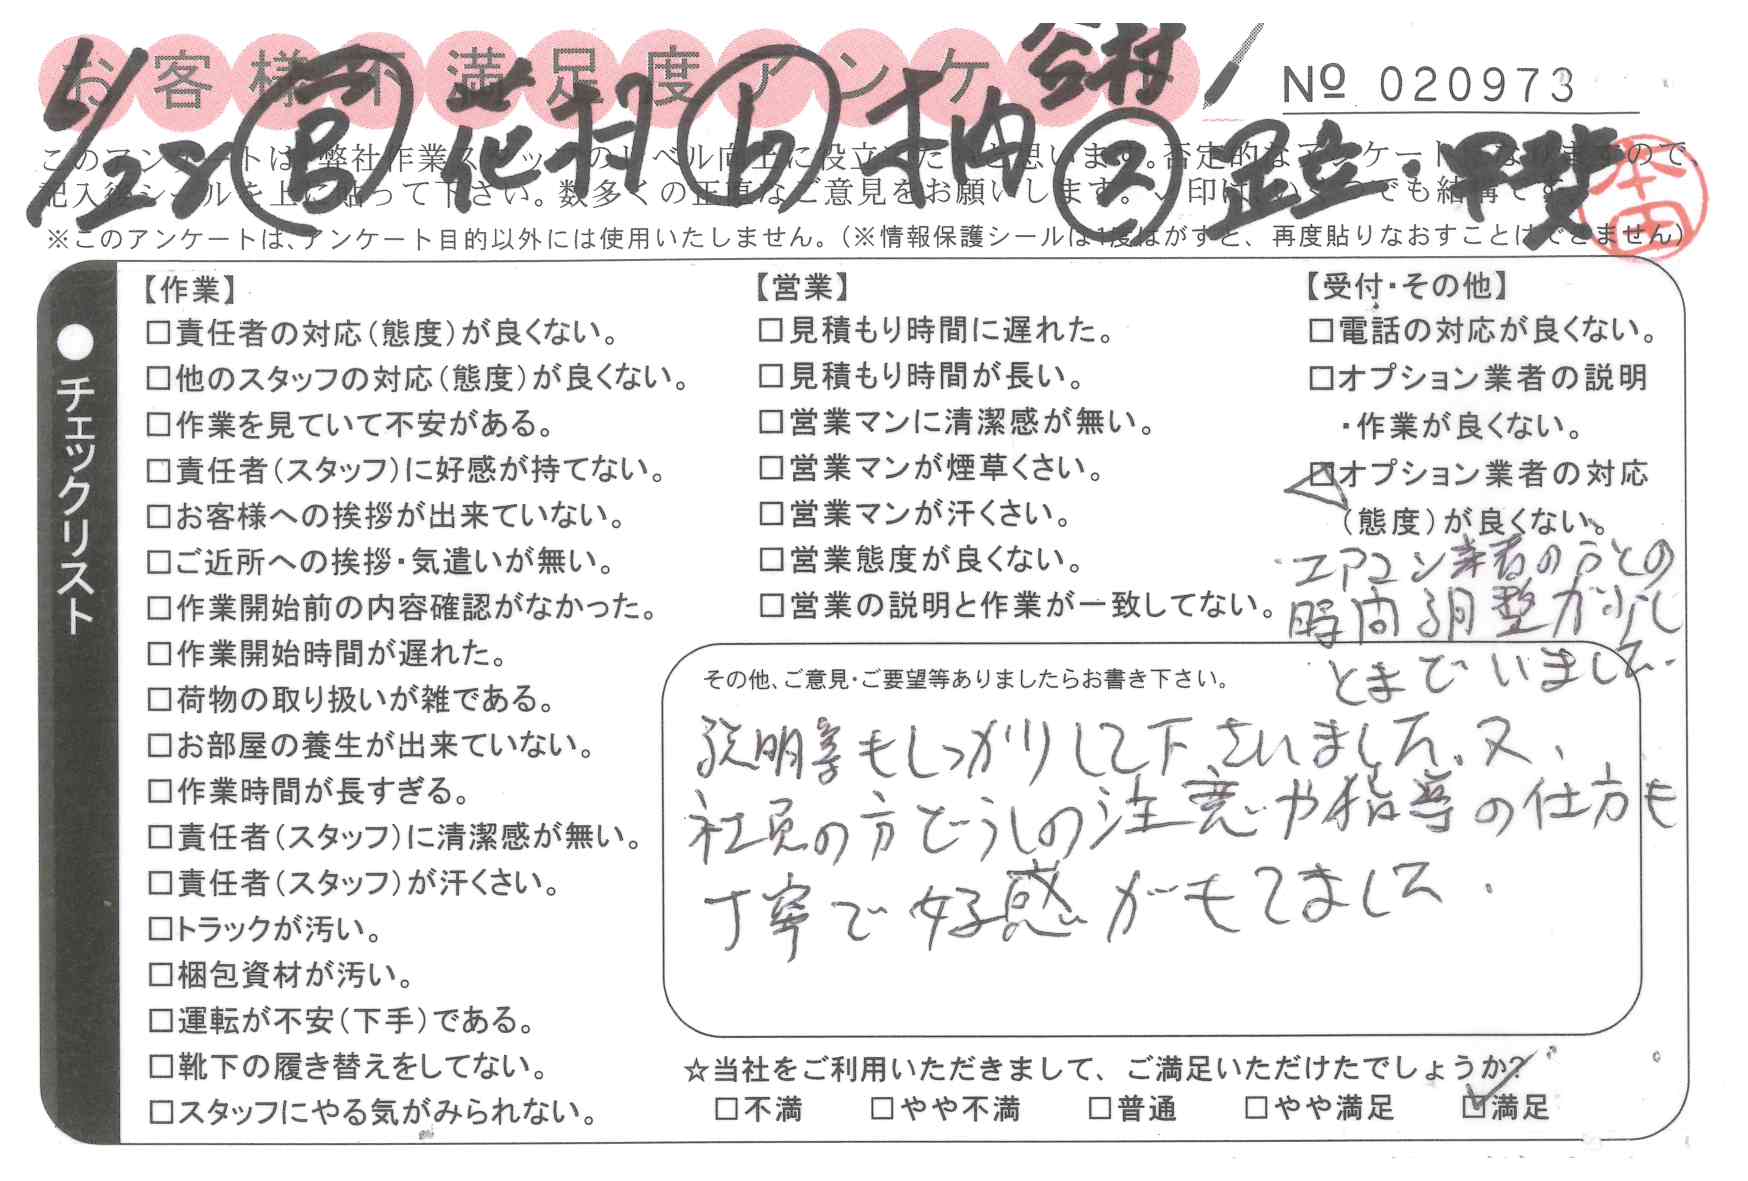 お客様不満足度アンケート
№ 020973
6/28 営 花村 ト 柚 谷村 ス 足立・甲斐
本田
このアンケートは、弊社作業スタッフのレベル向上に役立てたいと思います。否定的なアンケートになりますので、
記入後シールを上に貼って下さい。数多くの正直なご意見をお願いします。✓印はいくつでも結構です。
※このアンケートは、アンケート目的以外には使用いたしません。(※情報保護シールは1度はがすと、再度貼りなおすことはできません)
●チェックリスト
【作業】
□責任者の対応(態度)が良くない。
□他のスタッフの対応(態度)が良くない。
□作業を見ていて不安がある。
□責任者(スタッフ)に好感が持てない。
□お客様への挨拶が出来ていない。
□ご近所への挨拶・気遣いが無い。
□作業開始前の内容確認がなかった。
□作業開始時間が遅れた。
□荷物の取り扱いが雑である。
□お部屋の養生が出来ていない。
□作業時間が長すぎる。
□責任者(スタッフ)に清潔感が無い。
□責任者(スタッフ)が汗くさい。
□トラックが汚い。
□梱包資材が汚い。
□運転が不安(下手)である。
□靴下の履き替えをしてない。
□スタッフにやる気がみられない。
【営業】
□見積もり時間に遅れた。
□見積もり時間が長い。
□営業マンに清潔感が無い。
□営業マンが煙草くさい。
□営業マンが汗くさい。
□営業態度が良くない。
□営業の説明と作業が一致してない。
【受付・その他】
□電話の対応が良くない。
□オプション業者の説明
・作業が良くない。
□オプション業者の対応
(態度)が良くない。
エアコン業者の方との
時間調整が少し
とまどいました.
その他、ご意見・ご要望等ありましたらお書き下さい。
説明等もしっかりして下さいました。又、
社員の方どうしの注意や指導の仕方も
丁寧で好感がもてました.
☆当社をご利用いただきまして、ご満足いただけたでしょうか?
□不満 □やや不満 □普通 □やや満足 ☑満足